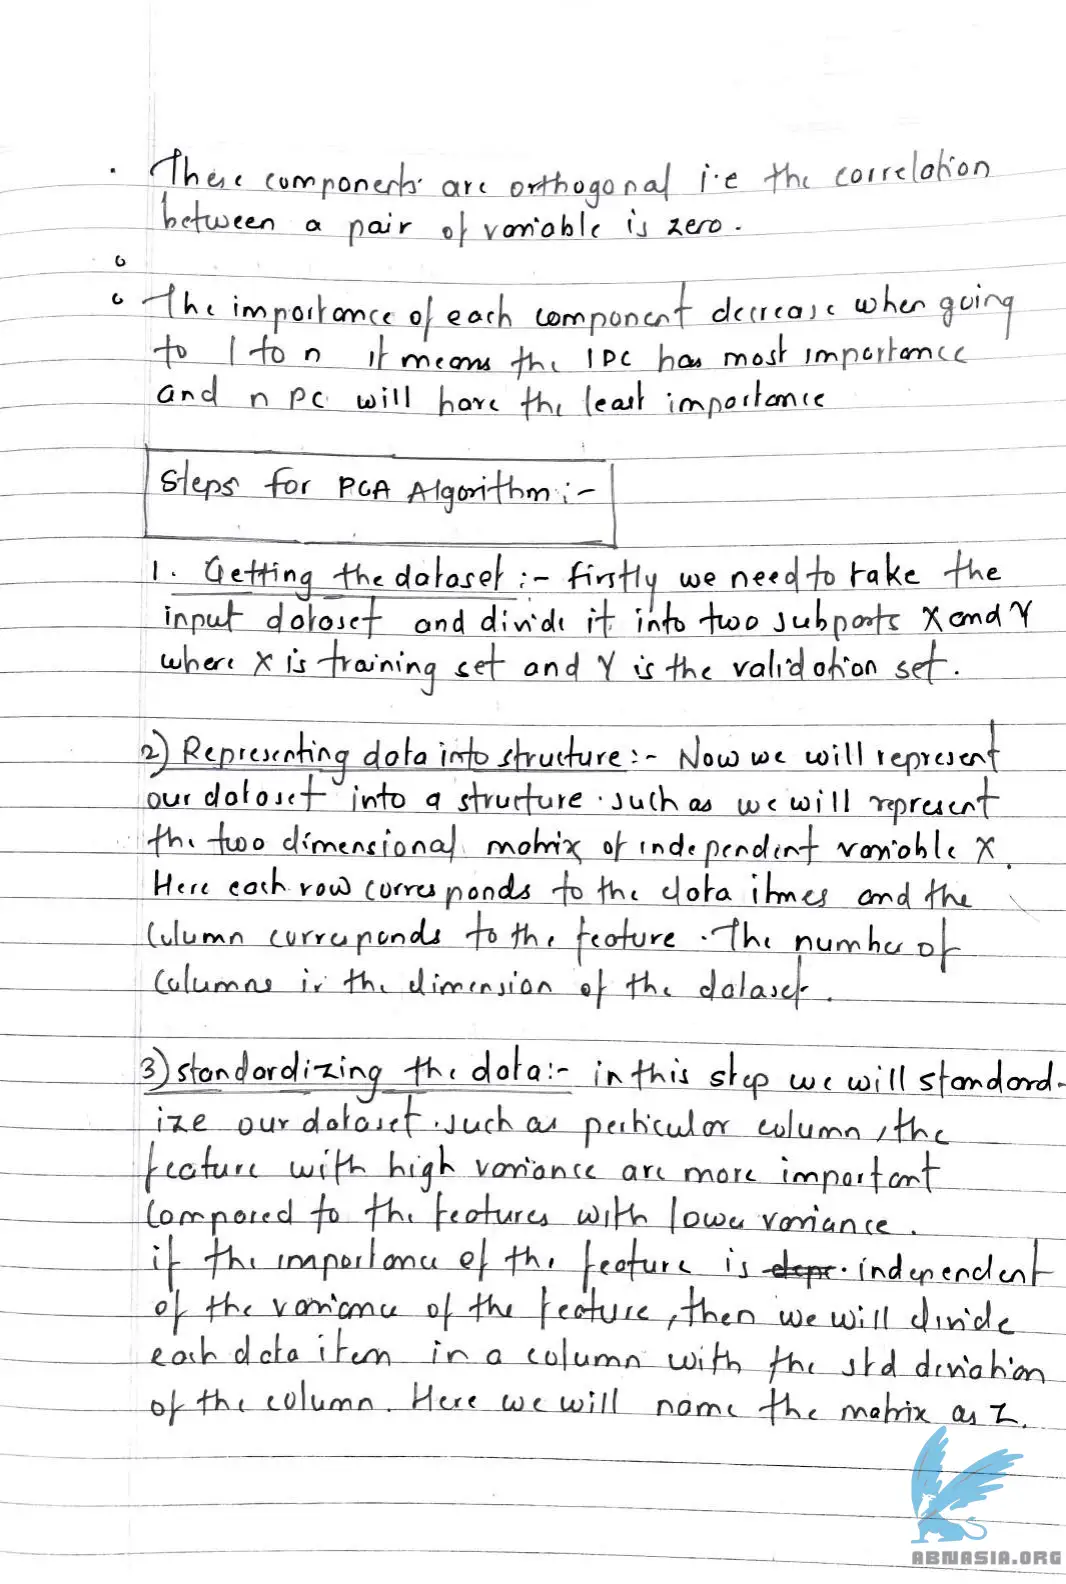 · These components are orthogonal i.e the correlation
between a pair of variable is zero.
o
o The importance of each component decrease when going
to 1 to n it means the 1PC has most importance
and n PC will have the least importance
Steps for PCA Algorithm:-
1. Getting the dataset:- firstly we need to take the
input dataset and divide it into two subparts X and Y
where X is training set and Y is the validation set.
2) Representing data into structure:- Now we will represent
our dataset into a structure. such as we will represent
the two dimensional matrix of independent variable X.
Here each row corresponds to the data itmes and the
Column corresponds to the feature. The number of
Columns is the dimension of the dataset.
3) standardizing the data:- in this step we will standard-
ize our dataset. such as perticular column, the
feature with high variance are more important
Compared to the features with lower variance.
if the importance of the feature is depe. independent
of the variance of the feature, then we will divide
each data item in a column with the std deviation
of the column. Here we will name the matrix as Z.
ABNASIA.ORG